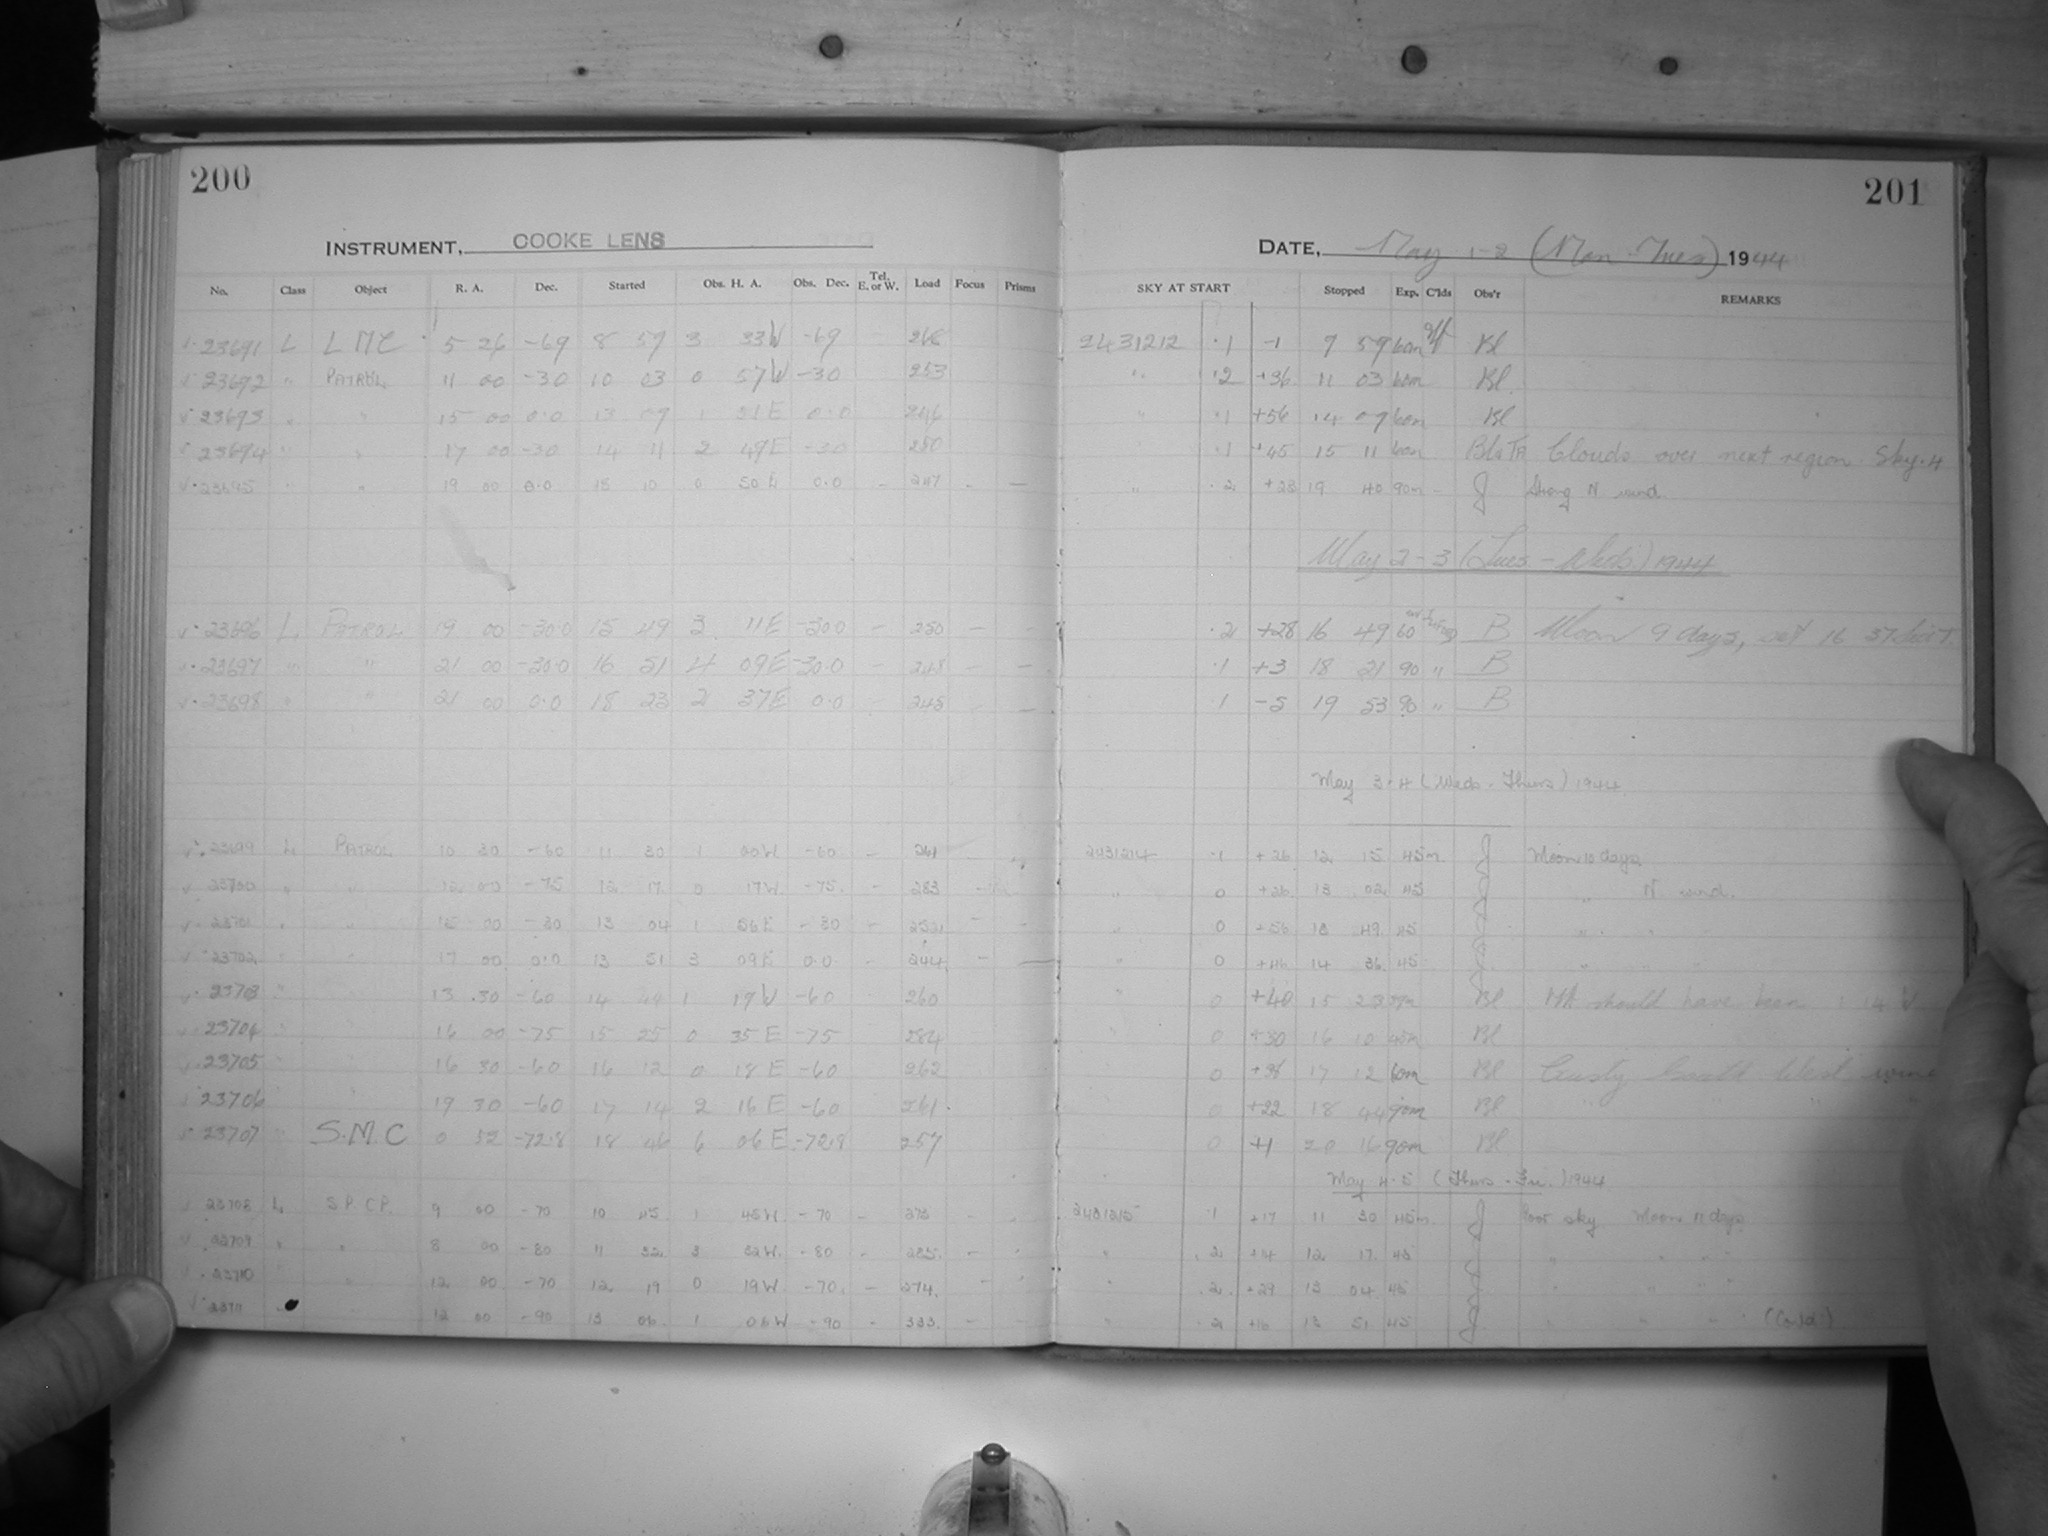 200
201
INSTRUMENT, COOKE LENS
DATE, May 1-2 (Mon-Tues) 1944
No. Class Object R. A. Dec. Started Obs. H. A. Obs. Dec. Tel. E. or W. Load Focus Prisms SKY AT START Stopped Exp. C'lds Obs'r REMARKS
23691 L L M C 5 26 -69 8 57 3 33W -69 268 2431212 .1 -1 9 59 60m Bl
23692 " PATROL 11 00 -30 10 03 0 57W -30 253 " .2 +36 11 03 60m Bl
23693 " " 15 00 0.0 13 09 1 51E 0.0 246 " .1 +56 14 09 60m Bl
23694 " " 17 00 -30 14 11 2 49E -30 250 " .1 +45 15 11 60m Bl&TA Clouds over next region Sky.4
23695 " " 19 00 0.0 18 10 0 50E 0.0 247 - - " .2 +28 19 40 90m - J Strong N wind.
May 2-3 (Tues - Weds) 1944
23696 L PATROL 19 00 -30.0 15 49 3 11E -30.0 - 250 - - .2 +28 16 49 60 B Moon 9 days, set 16 37
23697 " " 21 00 -30.0 16 51 4 09E -30.0 - 248 - - .1 +3 18 21 90 " B
23698 " " 21 00 0.0 18 23 2 37E 0.0 - 245 - - .1 -5 19 53 90 " B
May 3.4 (Weds. Thurs) 1944.
23699 L PATROL 10 30 -60 11 30 1 00W -60 - 261 2431214 .1 +26 12 15 45m J Moon 10 days
23700 " " 12 00 -75 12 17 0 17W -75. - 283 - " 0 +26 13 02 45 J " N wind.
23701 " " 15 00 -30 13 04 1 56E -30 - 252 - - " 0 +56 13 49 45 J " " "
23702 " " 17 00 0.0 13 51 3 09E 0.0 - 244 - - " 0 +46 14 36 45 J " " "
23703 " " 13 30 -60 14 1 19W -60 260 " 0 +40 15 23 Bl HA should have been 1 14 W
23704 " 16 00 -75 15 25 0 35E -75 284 0 +30 16 10 45m Bl
23705 " 16 30 -60 16 12 0 18E -60 262 0 17 12 60m Bl Gusty South West wind
23706 19 30 -60 17 14 2 16E -60 261 0 +22 18 44 90m Bl " " " "
23707 " S.M.C 0 52 -72.8 18 46 6 06E -72.8 257 0 +1 20 16 90m Bl
May 4.5 (Thurs - Fri.) 1944
23708 L S.P.CP. 9 00 -70 10 45 1 45W -70 - 273 - - 2431215 .1 +17 11 30 45m J Poor sky Moon 11 days
23709 " " 8 00 -80 11 32 3 32W -80 - 285 - - " .2 +14 12 17 45 J " " "
23710 " 12 00 -70 12 19 0 19W -70. - 274. - - " .2 +29 13 04 45 J " " "
23711 " 12 00 -90 13 06 1 06W -90 - 333. - - " .2 +16 13 51 45 J " " " (Cold)